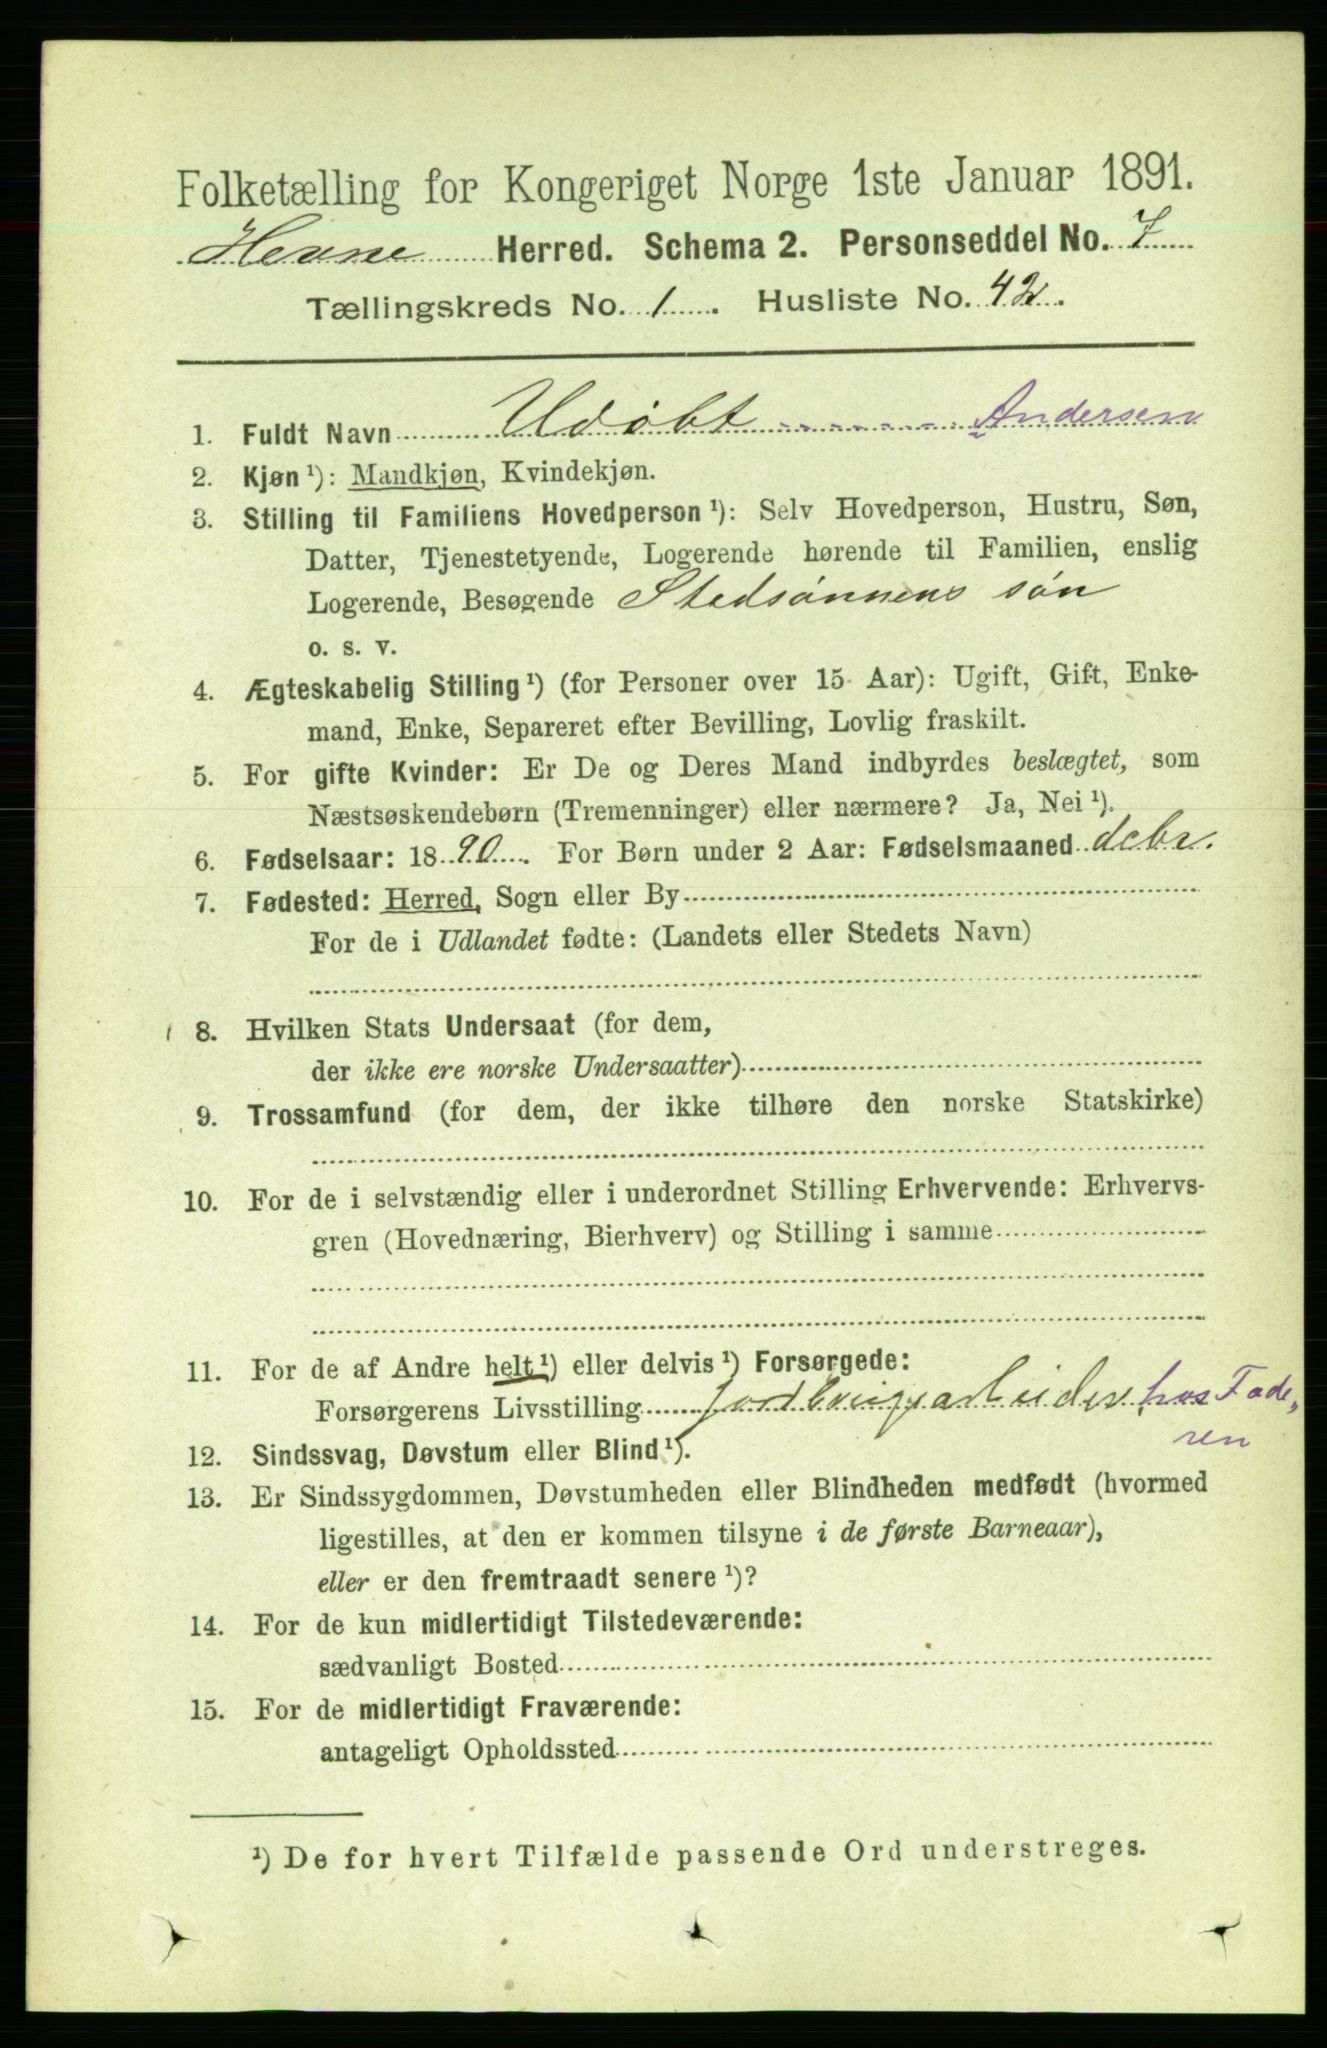 Folketælling for Kongeriget Norge 1ste Januar 1891.
Hevne Herred. Schema 2. Personseddel No. 7
Tællingskreds No. 1. Husliste No. 42.
1. Fuldt Navn Udøbt Andersen
2. Kjøn ¹): Mandkjøn, Kvindekjøn.
3. Stilling til Familiens Hovedperson ¹): Selv Hovedperson, Hustru, Søn,
Datter, Tjenestetyende, Logerende hørende til Familien, enslig
Logerende, Besøgende Stedsønnens søn
o. s. v.
4. Ægteskabelig Stilling ¹) (for Personer over 15 Aar): Ugift, Gift, Enke-
mand, Enke, Separeret efter Bevilling, Lovlig fraskilt.
5. For gifte Kvinder: Er De og Deres Mand indbyrdes beslægtet, som
Næstsøskendebørn (Tremenninger) eller nærmere? Ja, Nei ¹).
6. Fødselsaar: 1890. For Børn under 2 Aar: Fødselsmaaned debr.
7. Fødested: Herred, Sogn eller By
For de i Udlandet fødte: (Landets eller Stedets Navn)
8. Hvilken Stats Undersaat (for dem,
der ikke ere norske Undersaatter)
9. Trossamfund (for dem, der ikke tilhøre den norske Statskirke)
10. For de i selvstændig eller i underordnet Stilling Erhvervende: Erhvervs-
gren (Hovednæring, Bierhverv) og Stilling i samme
11. For de af Andre helt ¹) eller delvis ¹) Forsørgede:
Forsørgerens Livsstilling jordbrugsarbeider, hos Fade,
ren
12. Sindssvag, Døvstum eller Blind ¹).
13. Er Sindssygdommen, Døvstumheden eller Blindheden medfødt (hvormed
ligestilles, at den er kommen tilsyne i de første Barneaar),
eller er den fremtraadt senere ¹)?
14. For de kun midlertidigt Tilstedeværende:
sædvanligt Bosted
15. For de midlertidigt Fraværende:
antageligt Opholdssted
¹) De for hvert Tilfælde passende Ord understreges.